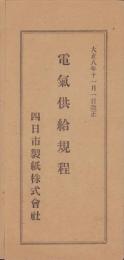 大正八年十一月一日改正
電氣供給規程
四日市製紙株式會社